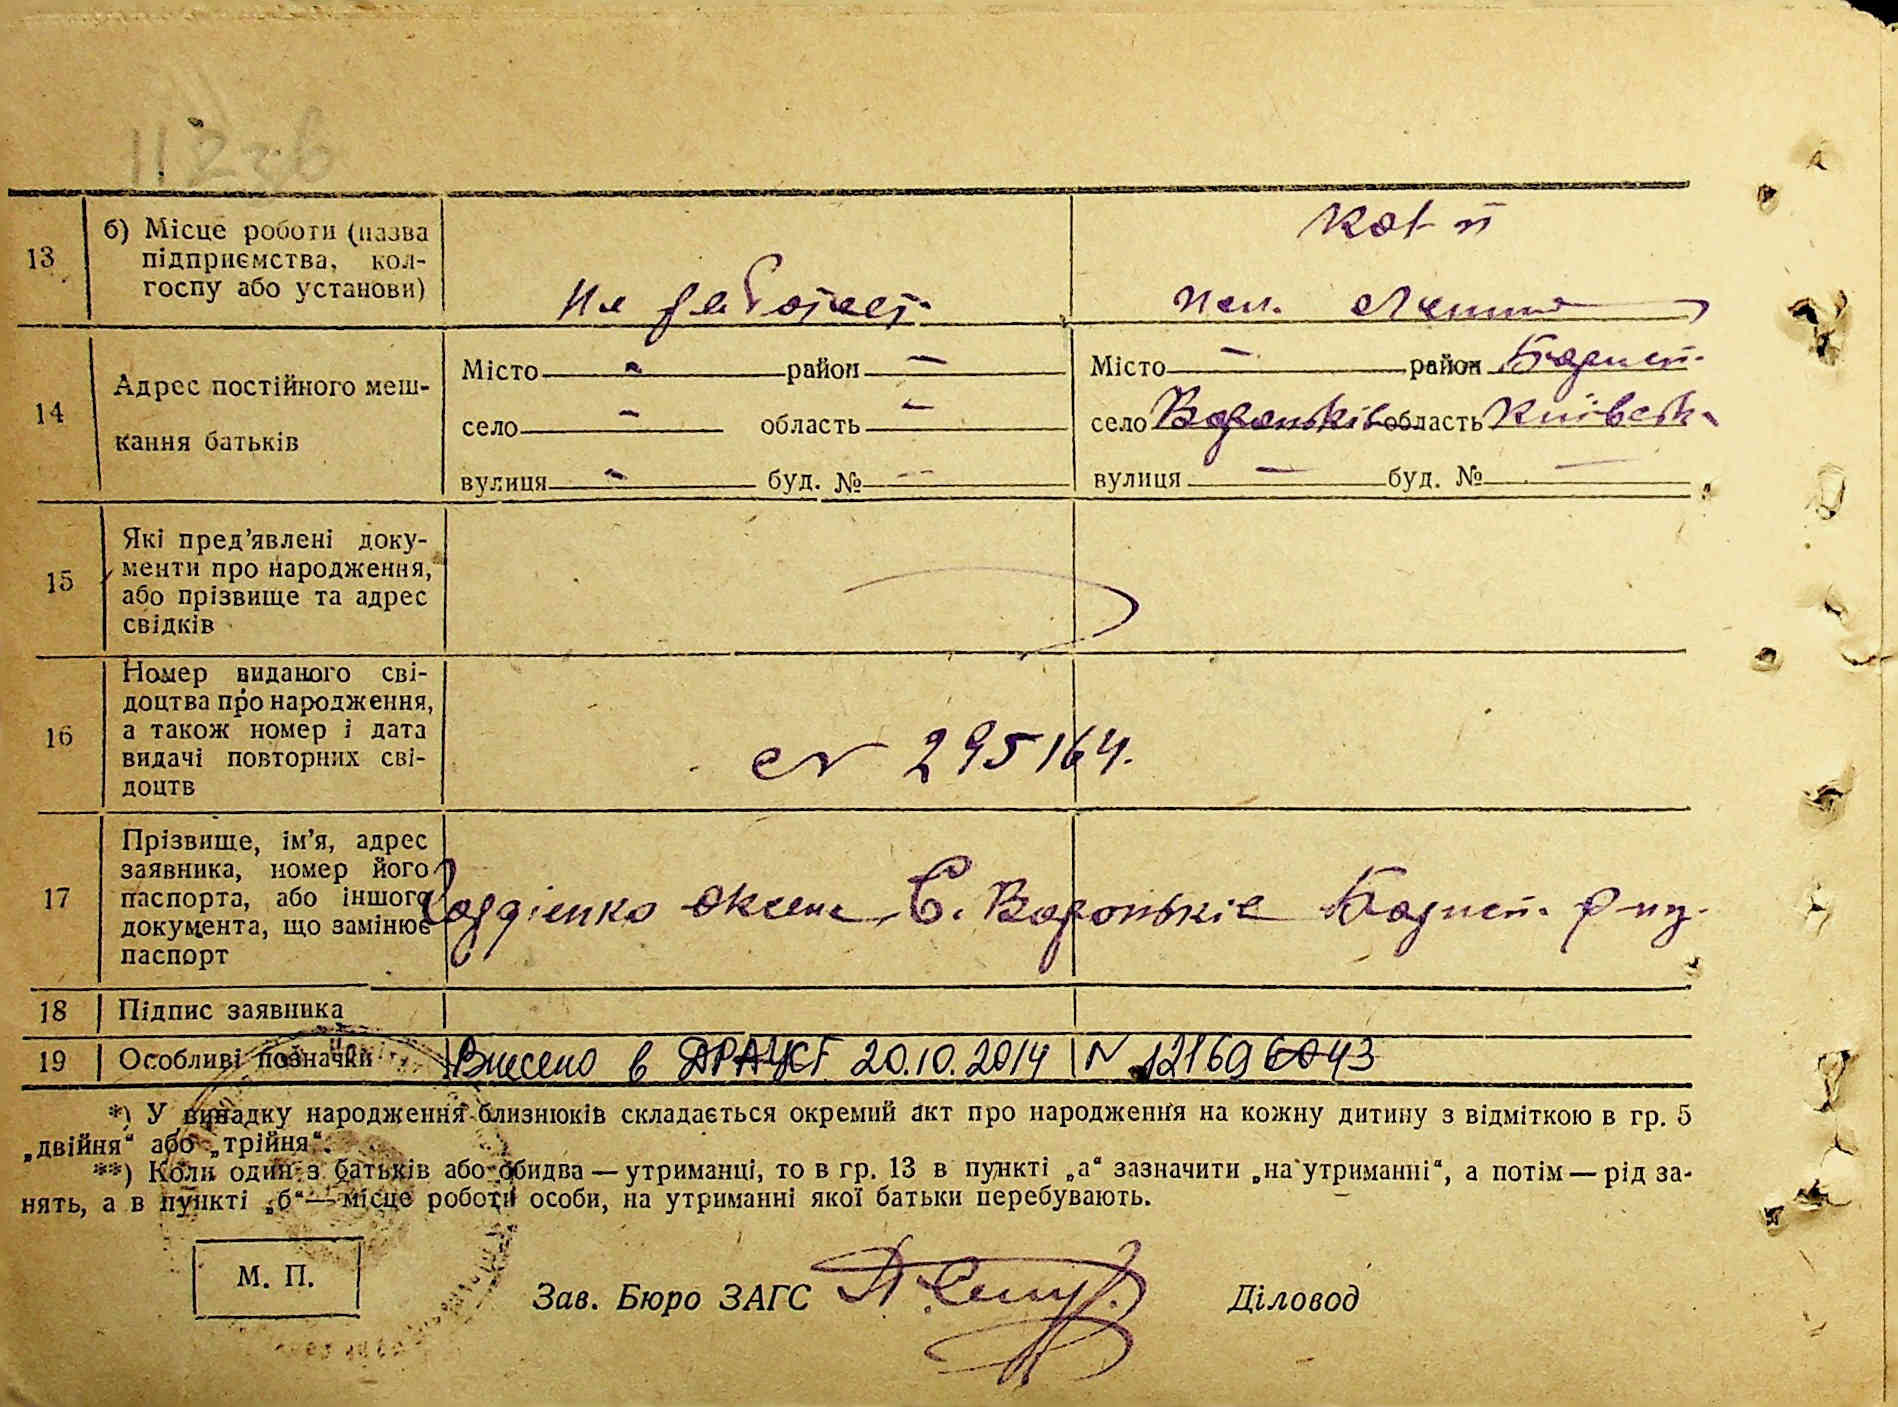 13
б) Місце роботи (назва
підприємства, кол-
госпу або установи)
Не работает.
Кол п
им. Ленина
14
Адрес постійного меш-
кання батьків
Місто - район -
село - область -
вулиця - буд. № -
Місто - район Борисп.
село Вороньків область Київськ.
вулиця - буд. № -
15
Які пред'явлені доку-
менти про народження,
або прізвище та адрес
свідків
16
Номер виданого сві-
доцтва про народження,
а також номер і дата
видачі повторних сві-
доцтв
N 295164.
17
Прізвище, ім'я, адрес
заявника, номер його
паспорта, або іншого
документа, що замінює
паспорт
Гордієнко Оксена С. Вороньків Борисп. р-ну.
18 Підпис заявника
19 Особливі позначки
Внесено в ДРАЦСГ 20.10.2014 N 121696043
*) У випадку народження близнюків складається окремий акт про народження на кожну дитину з відміткою в гр. 5
„двійня“ або „трійня“.
**) Коли один з батьків або обидва — утриманці, то в гр. 13 в пункті „а“ зазначити „на утриманні“, а потім — рід за-
нять, а в пункті „б“ — місце роботи особи, на утриманні якої батьки перебувають.
М. П.
Зав. Бюро ЗАГС
Діловод